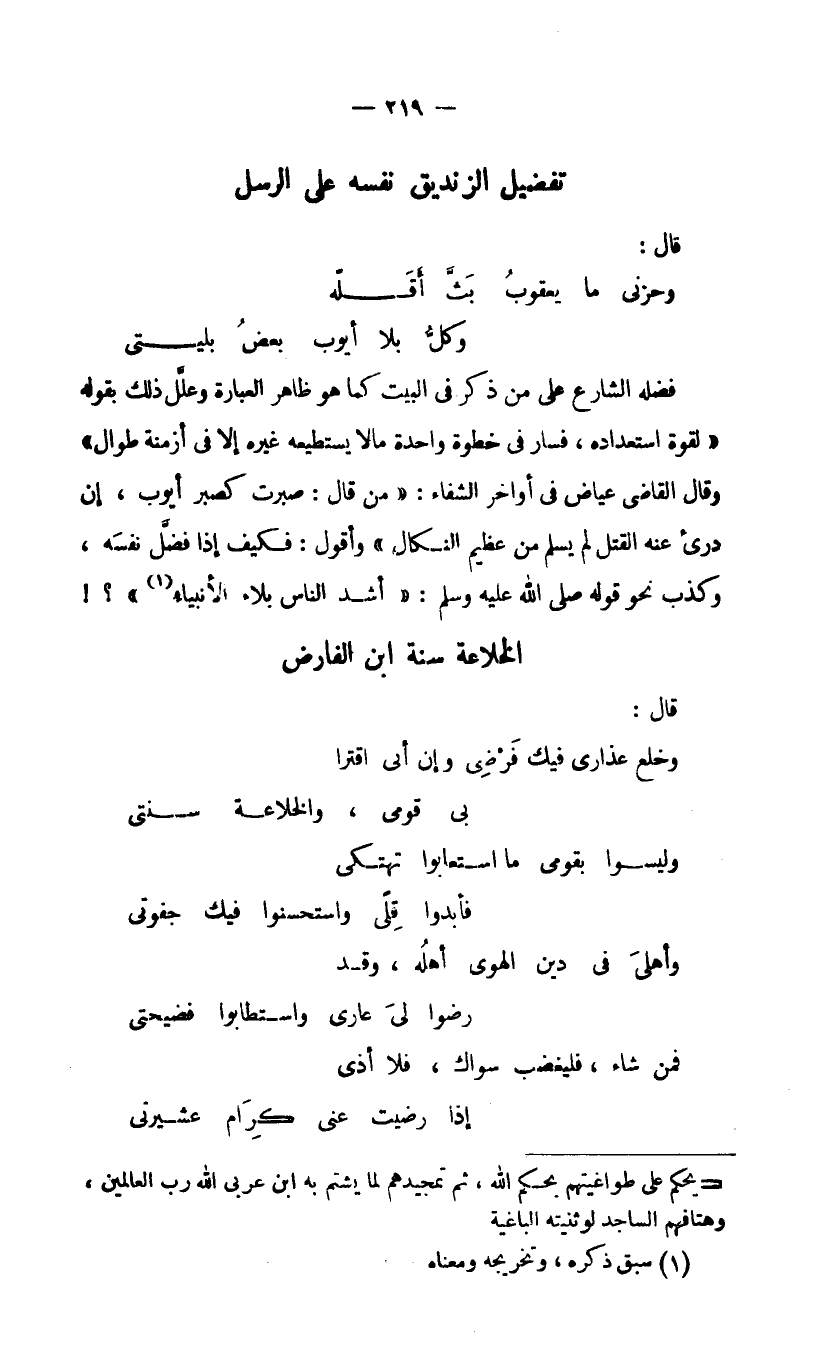 — ٢١٩ —
تفضيل الزنديق نفسه على الرسل
قال :
وحزنى ما يعقوبُ بَثَّ أَقَـــلّه
وكلُّ بلا أيوب بعضُ بليـــتى
فضله الشارع على من ذكر فى البيت كما هو ظاهر العبارة وعلَّل ذلك بقوله
« لقوة استعداده ، فسار فى خطوة واحدة مالا يستطيعه غيره إلا فى أزمنة طوال»
وقال القاضى عياض فى أواخر الشفاء : « من قال : صبرت كصبر أيوب ، إن
درئ عنه القتل لم يسلم من عظيم النـكال » وأقول : فـكيف إذا فضَّل نفسَه ،
وكذب نحو قوله صلى الله عليه وسلم : « أشـد الناس بلاء الأنبياء(١) » ؟ !
الخلاعة سنة ابن الفارض
قال :
وخلع عذارى فيك فَرْضِى وإن أبى اقترا
بى قومى ، والخلاعـة ســنتى
وليســوا بقومى ما اسـتعابوا تهتـكى
فأبدوا قِلًى واستحسنوا فيك جفوتى
وأهلىَ فى دين الهوى أهلُه ، وقـد
رضوا لىَ عارى واسـتطابوا فضيحتى
فمن شاء ، فليغضب سواك ، فلا أذى
إذا رضيت عنى كِرَام عشـيرتى
= يحكم على طواغيتهم بحـكم الله ، ثم تمجيدهم لما يشتم به ابن عربى الله رب العالمين ،
وهتافهم الساجد لوثنيته الباغية
(١) سبق ذكره ، وتخريجه ومعناه